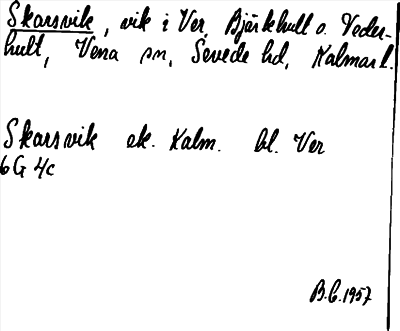 Skarsvik, vik i Ver, Bjärkhult o. Veder-
hult, Vena sn, Sevede hd, Kalmar l.
Skarsvik ek. Kalm. bl. Ver
6 G 4c
B.C. 1957